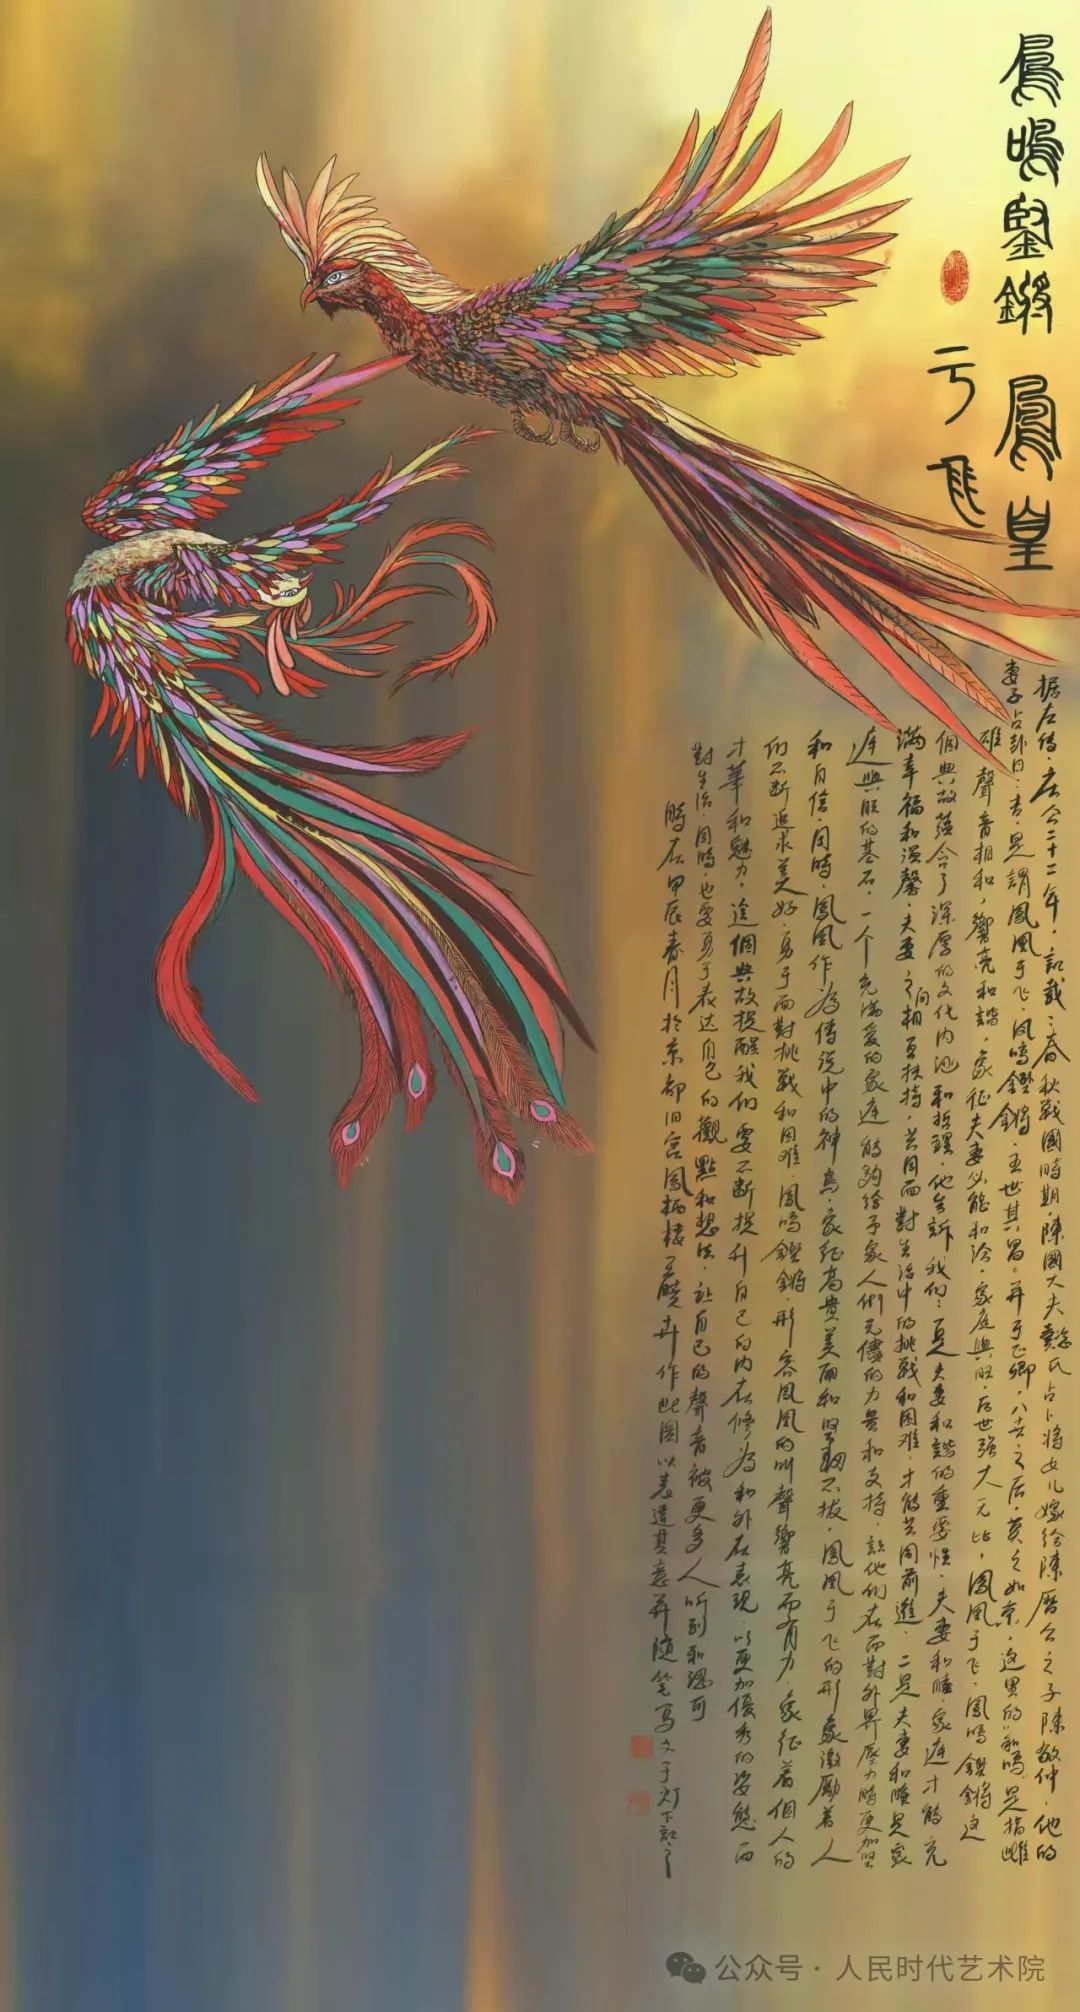 鳳鳴鏗鏘 鳳皇
于飛
据左传·庄公二十二年，記載：春秋戰國時期，陳國大夫懿氏占卜将女儿嫁给陳厲公之子陳敬仲，他的
妻子占卦曰：吉，是謂鳳凰于飞，凤鸣鏗鏘，五世其昌，并于正卿，八世之后，莫之如京，这里的"和鸣"是指雌
雄聲音相和，響亮和諧，象征夫妻必能和谐，家庭興旺，后世强大无比，鳳凰于飞，鳳鳴鏗鏘这
個典故蕴含了深厚的文化内涵和哲理，他告訴我們：一是夫妻和諧的重要性，夫妻和睦，家庭才能充
滿幸福和温馨，夫妻之间相互扶持，共同面對生活中的挑戰和困难，才能共同前進，二是夫妻和睦是家
庭興旺的基石，一个充滿爱的家庭能夠给予家人們无儘的力量和支持，讓他們在面對外界壓力時更加坚
和自信，同時，鳳凰作為傳说中的神鳥，象征高贵美丽和坚韧不拔，鳳凰于飞的形象激勵着人
们不断追求美好，勇于面對挑戰和困难，鳳鳴鏗鏘，形容凤凰的叫聲響亮而有力，象征着個人的
才華和魅力，這個典故提醒我们要不断提升自己的内在修為和外在表現，以更加優秀的姿態面
對生活，同時，也要勇于表达自己的觀點和想法，让自己的聲音被更多人听到和认可
時在甲辰春月於京都旧宫鳳栖楼王卉作此圖以表達其意并随笔寫文于灯下記之
公众号·人民时代艺术院